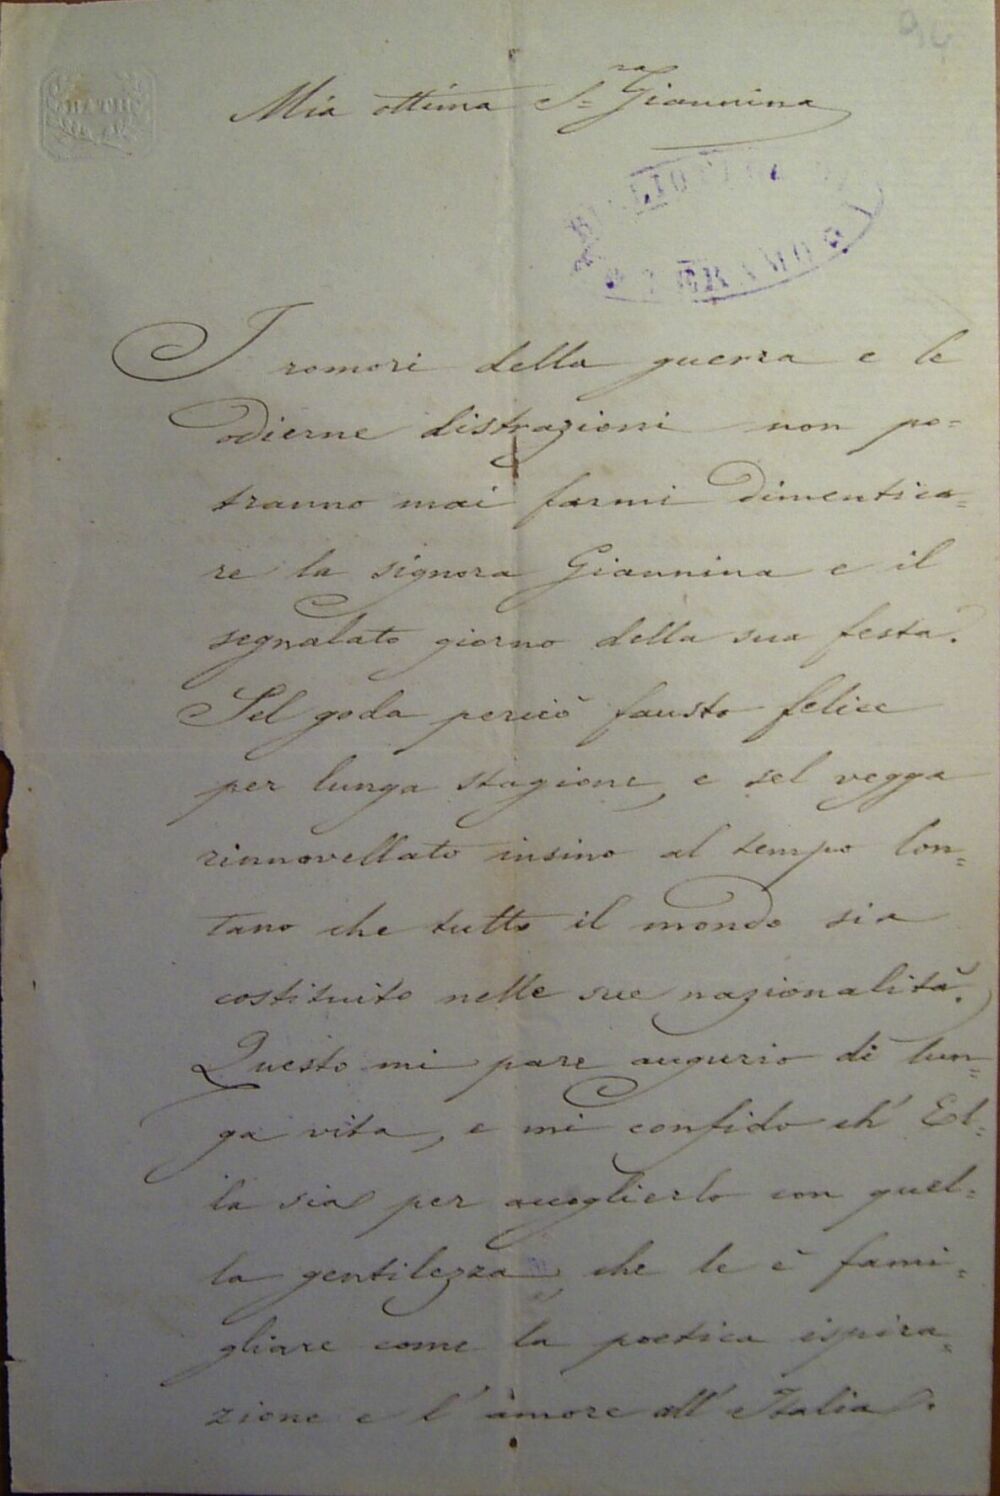 BATH
Mia ottima S.ra Giannina
BIBLIOTECA
TERAMO
I romori della guerra e le
odierne distrazioni non po=
tranno mai farmi dimentica=
re la signora Giannina e il
segnalato giorno della sua festa.
Sel goda perciò fausto felice
per lunga stagione, e sel vegga
rinnovellato insino al tempo lon=
tano che tutto il mondo sia
costituito nelle sue nazionalità.
Questo mi pare augurio di lun=
ga vita, e mi confido ch' El=
la sia per accoglierlo con quel=
la gentilezza che le è fami=
gliare come la poetica ispira=
zione e l'amore all'Italia.